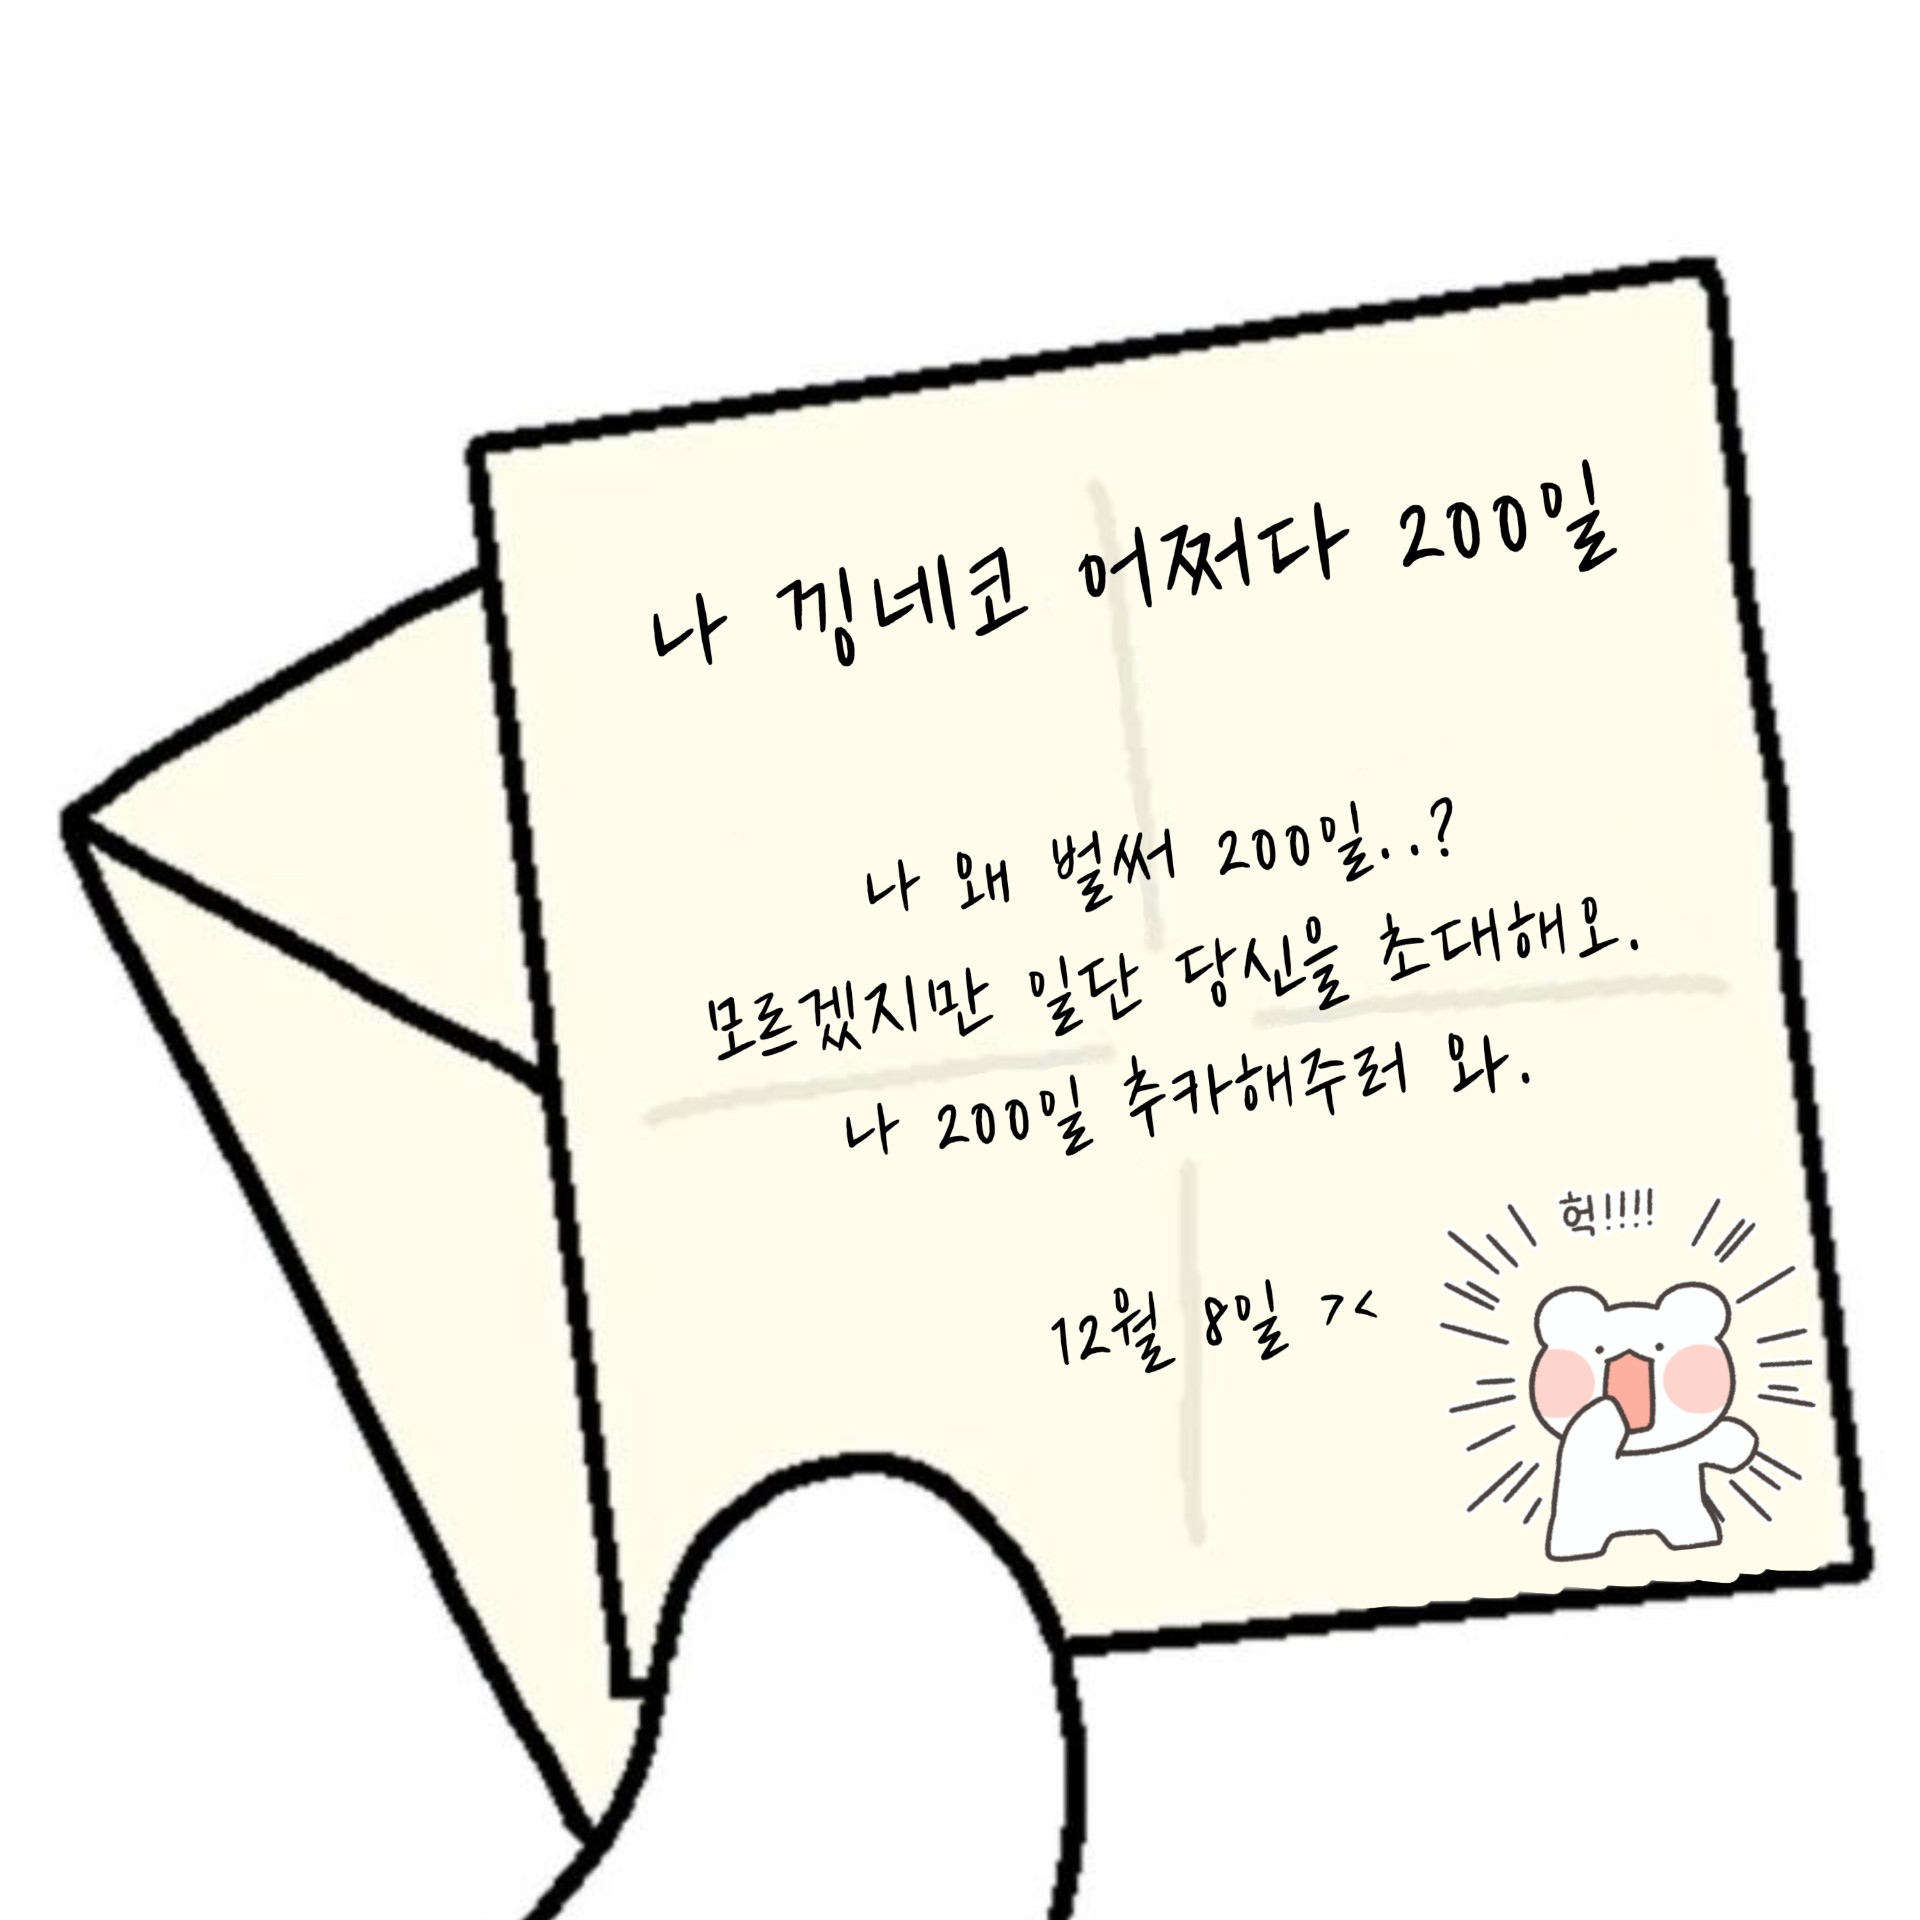 나 낑네코 어쩌다 200일
나 왜 벌써 200일..?
모르겠지만 일단 당신을 초대해요.
나 200일 추카해주러 와.
12월 8일 ><
헉!!!!